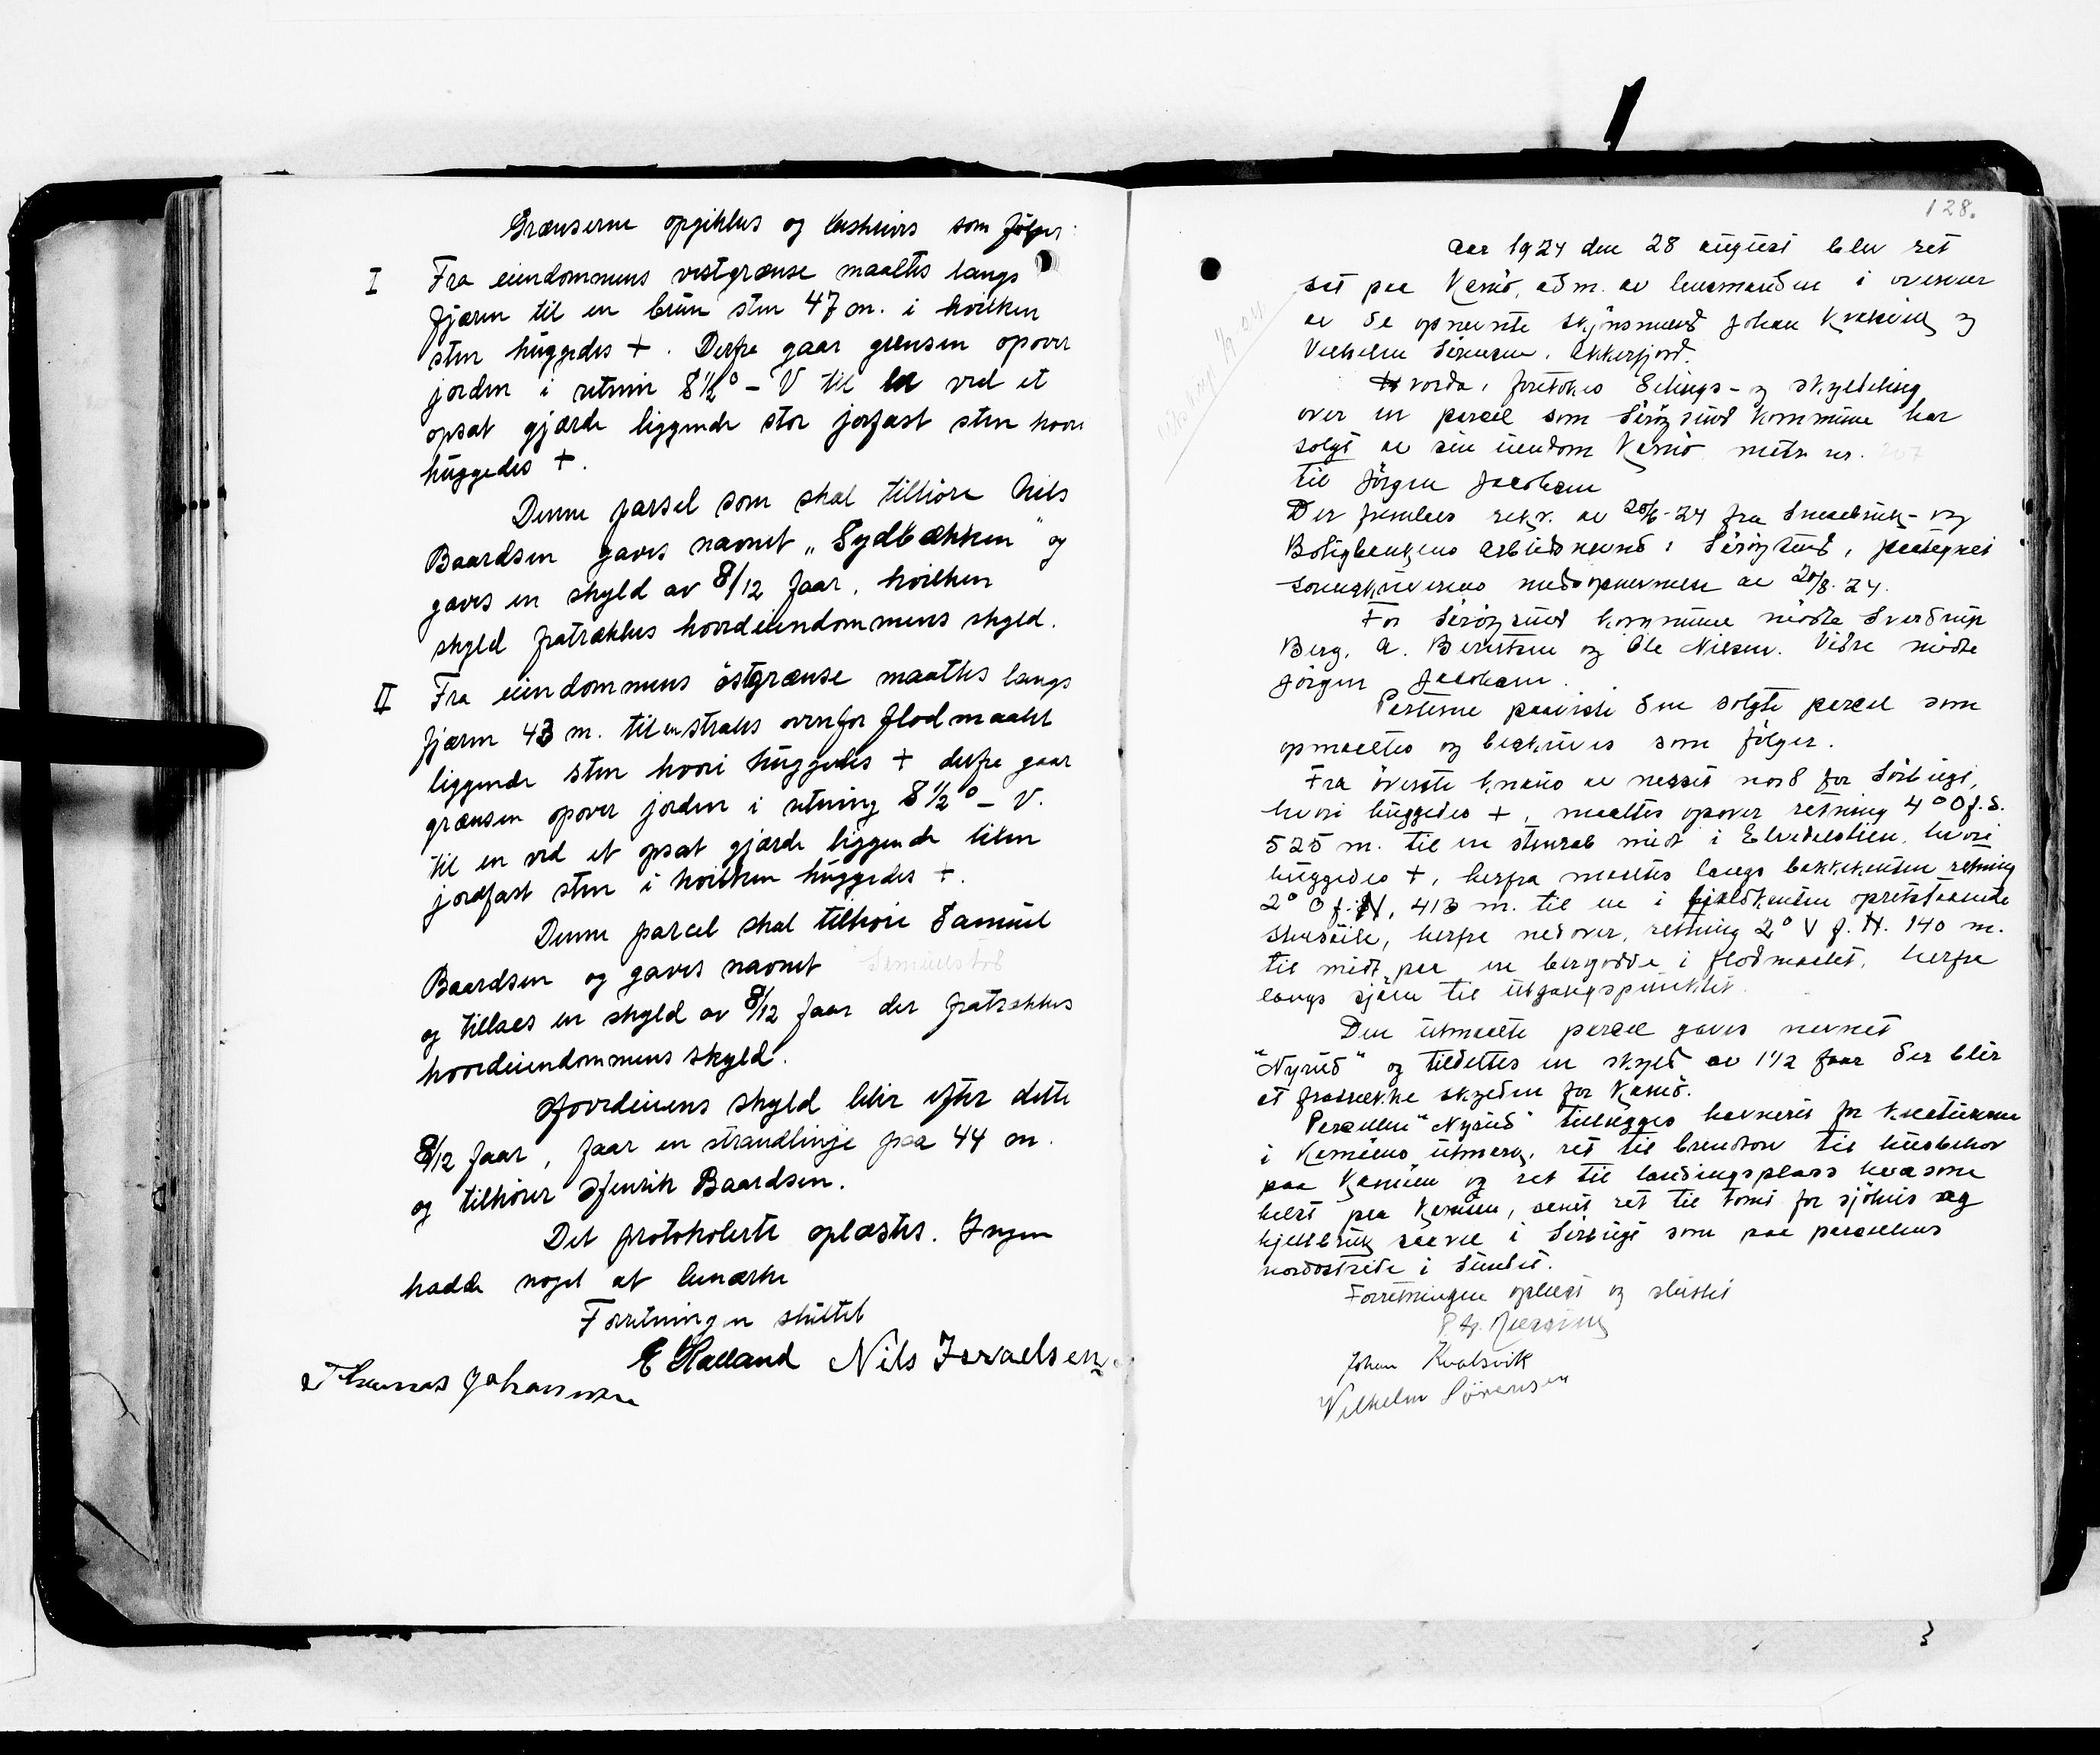 Grænserne opgikkes og beskrives som følger:
I Fra eiendommens vestgrænse maaltes langs
fjæren til en brun sten 47 m. i hvilken
sten huggedes +. Derfra gaar grensen opover
jorden i retnin 8½° - V til en ved et
opsat gjærde liggende stor jorfast sten hvori
huggedes +.
Denne parsel som skal tilhöre Nils
Baardsen gaves navnet „Sydbækken" og
gaves en skyld av 8/12 faar, hvilken
skyld fratrækkes hovedeiendommens skyld.
II Fra eiendommens östgrænse maaltes langs
fjæren 43 m. til en straks ovenfor flodmaalet
liggende sten hvori huggedes + derfra gaar
grænsen opover jorden i retning 8½° - V.
til en ved et opsat gjærde liggende liten
jordfast sten i hvilken huggedes +.
Denne parcel skal tilhöre Samuel
Baardsen og gaves navnet
og tillaes en skyld av 8/12 faar der fratrækkes
hovedeiendommens skyld.
Hovedeiens skyld blir efter dette
8/12 faar, faar en strandlinje paa 44 m.
og tilhörer Henrik Baardsen.
Det protokolerte oplæstes. Ingen
hadde noget at bemærke
Forretningen sluttet
E Halland Nils Israelsen
Thomas Johannsen
128.
Aar 1924 den 28 august blev ret
sat paa Kamö, adm. av lensmanden i overvær
av de opnevnte skjönsmend Johan Kvalsvik og
Vilhelm Sörensen, Akkarfjord.
Hvorda, foretokes delings- og skylddeling
over en parcel som Söröysund kommune har
solgt av sin eiendom Kamö matr. nr. 207
til Jörgen Jacobsen
Der fremlaes rekv. av 20/6-24 fra Smaabruk- og
Boligbankens arbeidsnevnd i Söröysund, paategnet
sorenskriverens medopnevnelse av 20/8.24.
For Söröysund kommune mödte Sverdrup
Berg, A. Berntsen og Ole Nilsen. Videre mödte
Jörgen Jacobsen.
Parterne paaviste den solgte parcel som
opmaaltes og beskrives som fölger.
Fra överste knaus av nesset nord for Sörbugt,
hvori huggedes +, maaltes opover retning 4° O f. S.
525 m. til en stenrab midt i Elvedalslien, hvori
huggedes +, herfra maaltes langs bakkekanten retning
2° O f. N, 413 m. til en i fjeldkanten opretstaaende
stensöile, herfra nedover, retning 2° V f. N. 140 m.
til midt paa en bergodde i flodmaalet, herfra
langs sjöen til utgangspunktet.
Den utmaalte parcel gaves navnet
"Nyrud" og tildeltes en skyld av 1½ faar der blir
at fratrække skylden for Kamö.
Parcellen "Nyrud" tillegges havneret for kreaturene
i Kamöens utmark, ret til brendtorv til husbehov
paa Kamöen og ret til landingsplass hvorsom
helst paa Kamöen, samt ret til tomt for sjöhus og
hjellbruk saavel i Sörbugt som paa parcellens
nordostside i Sundet.
Forretningen oplæst og sluttet
Johan Kvalsvik
Vilhelm Sörensen